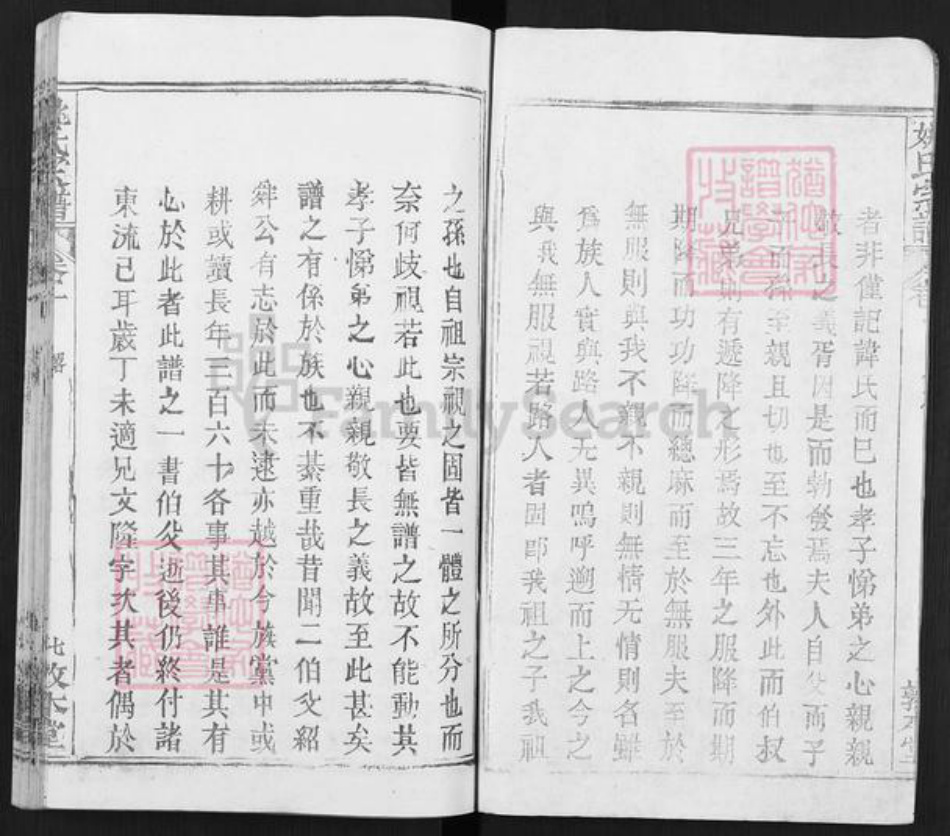 姚氏宗譜
者非僅記諱氏而已也孝子悌弟之心親親
敬長之義胥因是而勃發焉夫人自父而子
子而孫至親且切也至不忘也外此而伯叔
兄弟則有遞降之形焉故三年之服降而期
期降而功功降而緦麻而至於無服夫至於
無服則與我不親不親則無情无情則名雖
為族人實與路人无異嗚呼遡而上之今之
與我無服視若路人者固即我祖之子我祖
敦本堂
之孫也自祖宗視之固皆一體之所分也而
奈何歧視若此也要皆無譜之故不能動其
孝子悌弟之心親親敬長之義故至此甚矣
譜之有係於族也不綦重哉昔聞二伯父紹
舜公有志於此而未逮亦越於今族黨中或
耕或讀長年三百六十各事其事誰是其有
心於此者此譜之一書伯父逝後仍終付諸
東流已耳歲丁未適兄文隆字次其者偶於
FamilySearch